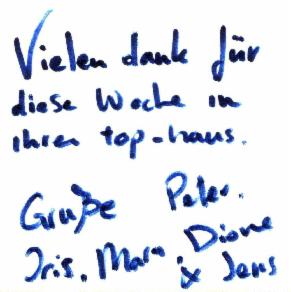 Vielen dank für
diese Woche in
ihren top-haus.
Gruße Peter.
Iris, Mara Dione
& Jens